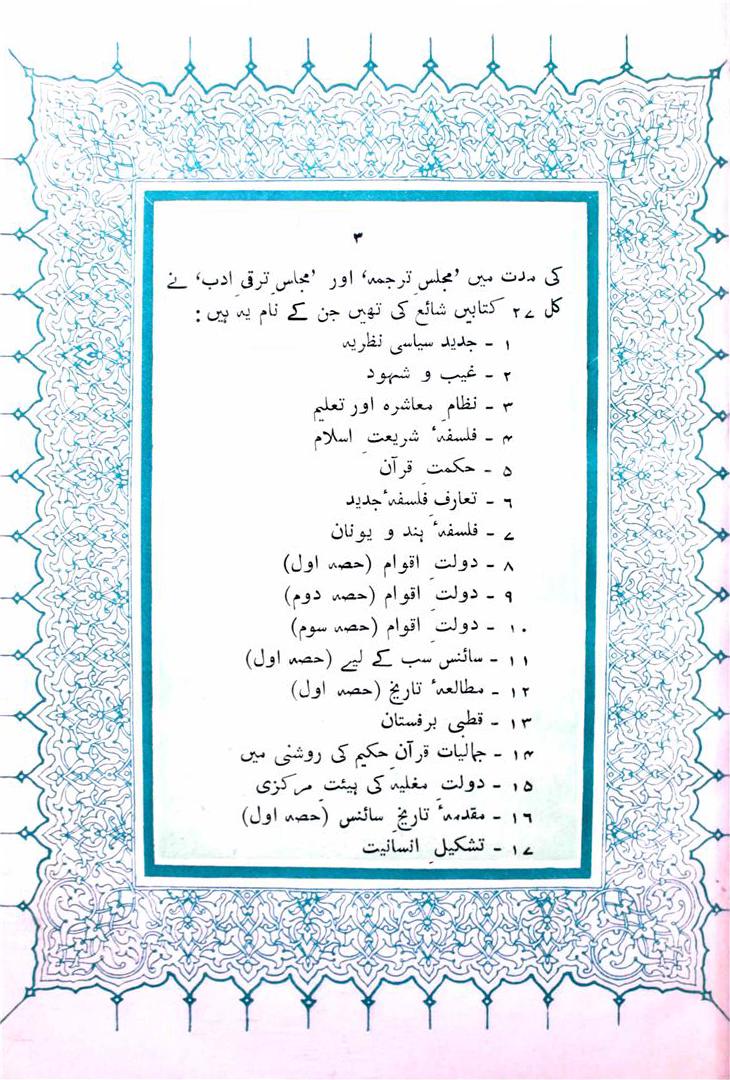 ۳
کی مدت میں ’مجلسِ ترجمہ‘ اور ’مجلسِ ترقیِ ادب‘ نے
کل ۲۷ کتابیں شائع کی تھیں جن کے نام یہ ہیں :
۱ - جدید سیاسی نظریہ
۲ - غیب و شہود
۳ - نظامِ معاشرہ اور تعلیم
۴ - فلسفۂ شریعتِ اسلام
۵ - حکمتِ قرآن
۶ - تعارفِ فلسفۂ جدید
۷ - فلسفۂ ہند و یونان
۸ - دولتِ اقوام (حصہ اول)
۹ - دولتِ اقوام (حصہ دوم)
۱۰ - دولتِ اقوام (حصہ سوم)
۱۱ - سائنس سب کے لیے (حصہ اول)
۱۲ - مطالعۂ تاریخ (حصہ اول)
۱۳ - قطبی برفستان
۱۴ - جمالیات قرآنِ حکیم کی روشنی میں
۱۵ - دولتِ مغلیہ کی ہیئتِ مرکزی
۱۶ - مقدمۂ تاریخِ سائنس (حصہ اول)
۱۷ - تشکیلِ انسانیت